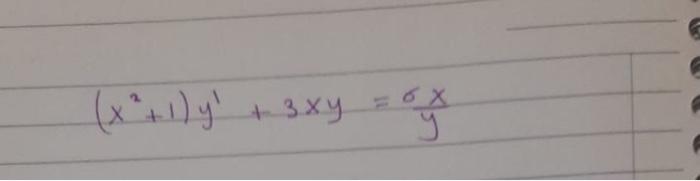 (x²+1)y' + 3xy = 6x/y